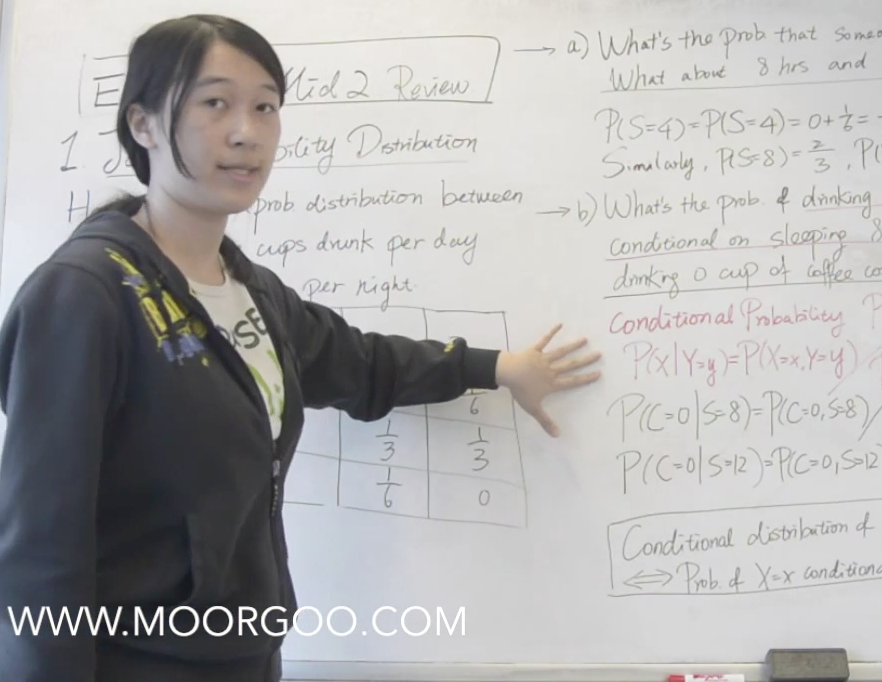 Mid 2 Review
1.
bility Distribution
H
prob distribution between
cups drunk per day
per night.
OSE
6
1/3 1/3
1/6 0
→ a) What's the prob that someo
What about 8 hrs and
P(S=4)=P(S=4)=0+1/6=
Similarly, P(S=8)=2/3, P(
→ b) What's the prob. of drinking
conditional on sleeping 8
drinking 0 cup of coffee co
Conditional Probability P
P(X|Y=y)=P(X=x,Y=y)/
P(C=0|S=8)=P(C=0,S=8)/
P(C=0|S=12)=P(C=0,S=12
Conditional distribution of
⟺ Prob. of X=x conditiona
WWW.MOORGOO.COM